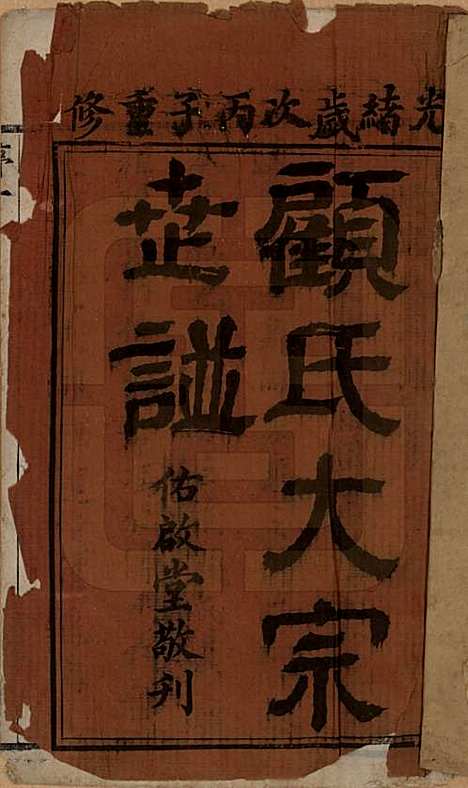 光緒歲次丙子重修
顧氏大宗
世譜
佑啟堂敬刋